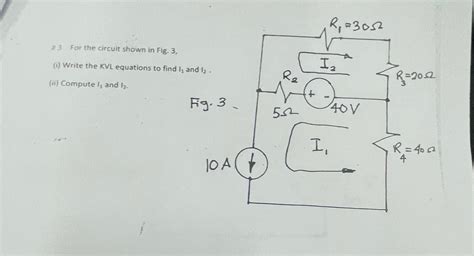 R₁=30Ω
#3 For the circuit shown in Fig. 3,
(i) Write the KVL equations to find I₁ and I₂.
(ii) Compute I₁ and I₂.
Fig. 3
I₂
R₃=20Ω
R₂
+ -
5Ω
40V
I₁
R₄=40Ω
10A